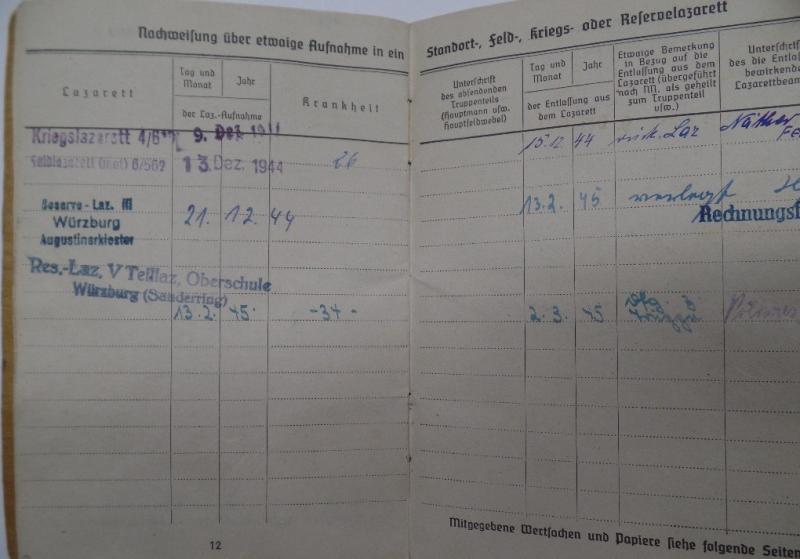 Nachweisung über etwaige Aufnahme in ein
Standort-, Feld-, Kriegs- oder Reservelazarett
Lazarett
Tag und Monat
Jahr
der Laz.-Aufnahme
Krankheit
Unterschrift
des absendenden
Truppenteils
(Hauptmann usw.
Hauptfeldwebel)
Tag und
Monat
Jahr
der Entlassung aus
dem Lazarett
Etwaige Bemerkung
in Bezug auf die
Entlassung aus dem
Lazarett (übergeführt
nach NN. als geheilt
zum Truppenteil
usw.)
Unterschrift
des die Entla
bewirkende
Lazarettbeam
Kriegslazarett 9. Dez.
15.12 44
13. Dez. 1944 26
Reserve-Laz. III
Würzburg 21. 12. 44
Augustinerkloster
13.2. 45 verlegt
Rechnungsf
Res.-Laz. V Teillaz. Oberschule
Würzburg (Sanderring)
13.2. 45. -34-
2.3. 45
12
Mitgegebene Wertsachen und Papiere siehe folgende Seiten